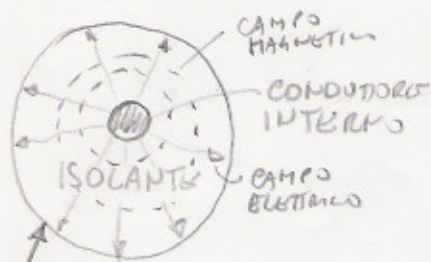 CAMPO
MAGNETICO
CONDUTTORE
INTERNO
ISOLANTE
CAMPO
ELETTRICO